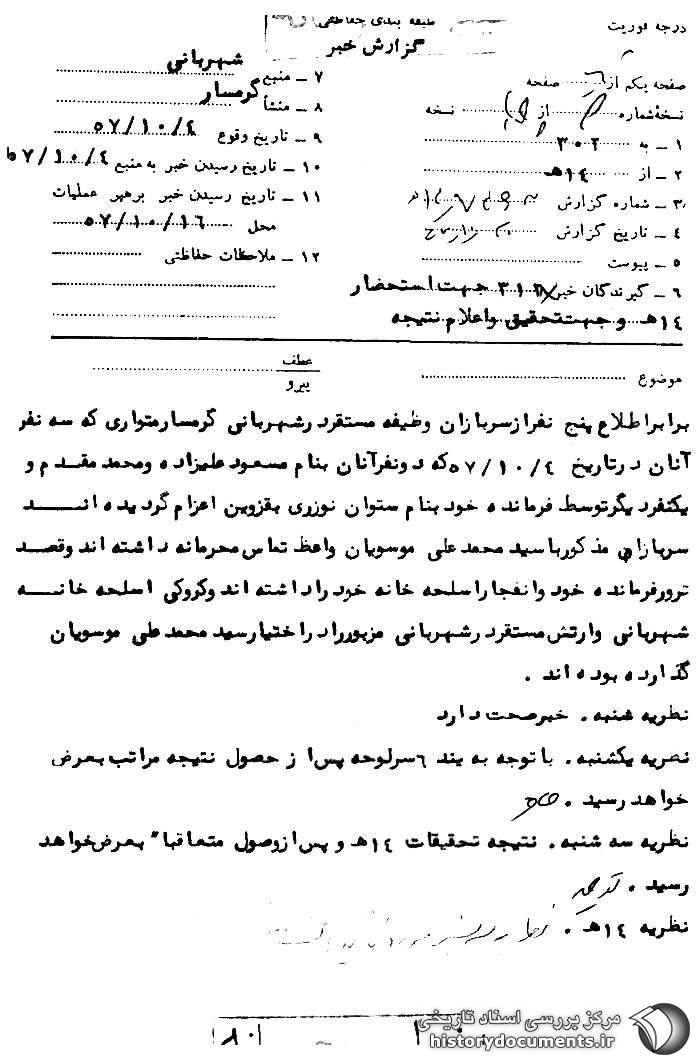 درجه فوریت
طبقه بندی حفاظتی
گزارش خبر
صفحه یکم از صفحه
نسخهٔ شماره از نسخه
۱ ــ به ۳۰۲
۲ ــ از ۱۴هـ
۳ ــ شماره گزارش
۴ ــ تاریخ گزارش
۵ ــ پیوست
۶ ــ گیرندگان خبر ۳۱۲ جهت استحضار
۱۴هـ و جهت تحقیق و اعلام نتیجه
۷ ــ منبع شهربانی
۸ ــ منشأ گرمسار
۹ ــ تاریخ وقوع ۵۷/۱۰/۴
۱۰ ــ تاریخ رسیدن خبر به منبع ۵۷/۱۰/۴
۱۱ ــ تاریخ رسیدن خبر برهبر عملیات
محل ۵۷/۱۰/۱۶
۱۲ ــ ملاحظات حفاظتی
موضوع
عطف
پیرو
برابر اطلاع پنج نفر از سربازان وظیفه مستقر در شهربانی گرمسار متواری که سه نفر
آنان در تاریخ ۵۷/۱۰/۴ که دو نفر آنان بنام مسعود علیزاده و محمد مقدم و
یکنفر دیگر توسط فرمانده خود بنام ستوان نوزری بقزوین اعزام گردیده اند
سربازان مذکور با سید محمد علی موسویان واعظ تماس محرمانه داشته اند و قصد
ترور فرمانده خود و انفجار اسلحه خانه خود را داشته اند و کروکی اسلحه خانه
شهربانی و ارتش مستقر در شهربانی مزبور را در اختیار سید محمد علی موسویان
گذارده بوده اند .
نظریه شنبه . خبر صحت دارد
نصریه یکشنبه . با توجه به بند ۶ سرلوحه پس از حصول نتیجه مراتب بعرض
خواهد رسید .
نظریه سه شنبه . نتیجه تحقیقات ۱۴هـ و پس از وصول متعاقبا" بعرض خواهد
رسید .
نظریه ۱۴هـ .
مرکز بررسی اسناد تاریخی
historydocuments.ir